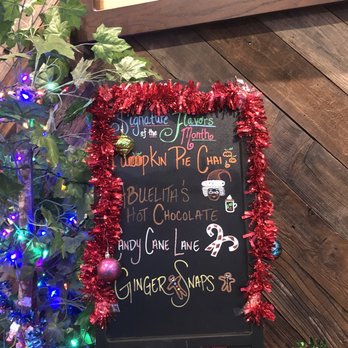 Signature Flavors
of the Month
Pumpkin Pie Chai
Abuelita's
Hot Chocolate
Candy Cane Lane
Ginger Snaps